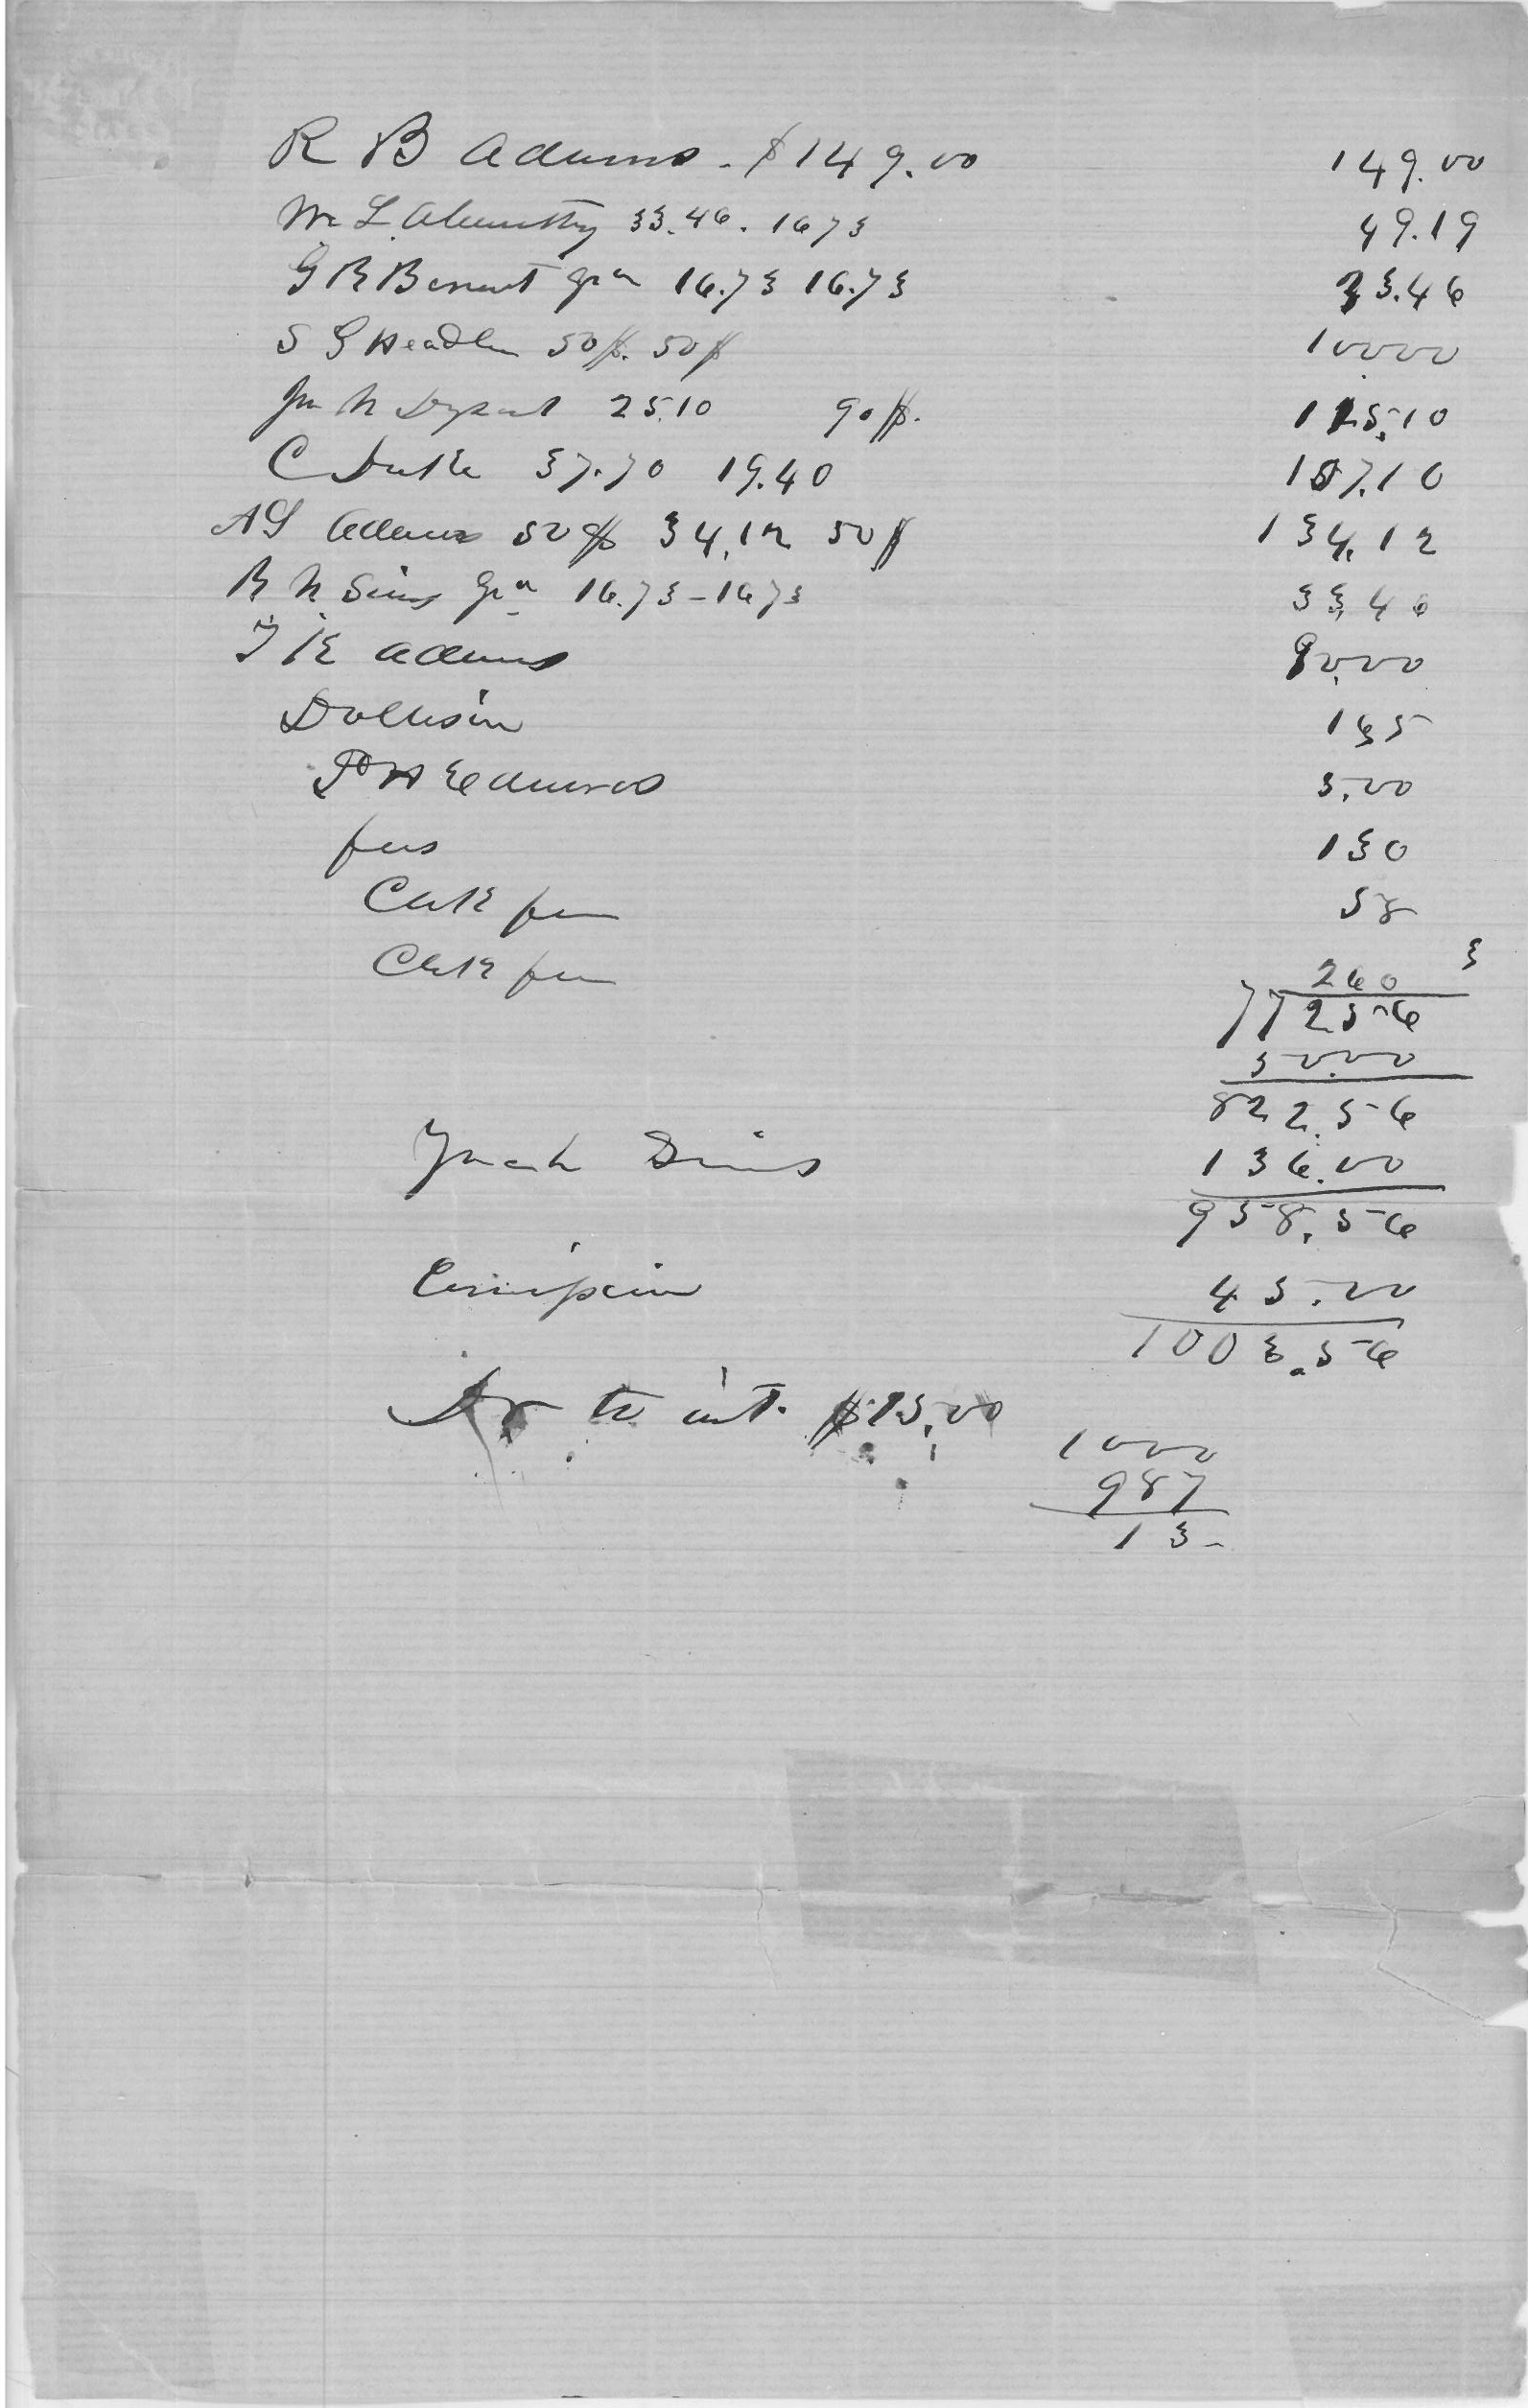 R B Adams. $149.00 149.00
Wm L. Abernathy 33.46. 1673 49.19
G R Bennet Grn 16.73 16.73 33.46
S G Headlen 50$. 50$ 10000
Jn N Dysart 25.10 90$. 115.10
C Duke 37.70 19.40 157.10
AG Adams 50$ 34.12 50$ 134.12
R N Sims Grn 16.73-1673 33.46
T K Adams 90.00
Dollison 165
P H Edmunds 5.00
fees 130
Clerk fee 58
Clerk fee 260 3
772 5-6
50.00
822.5-6
Sims 136.00
95-8.5-6
45.00
1003.5-6
Dr to int. $15.00
1000
987
13-